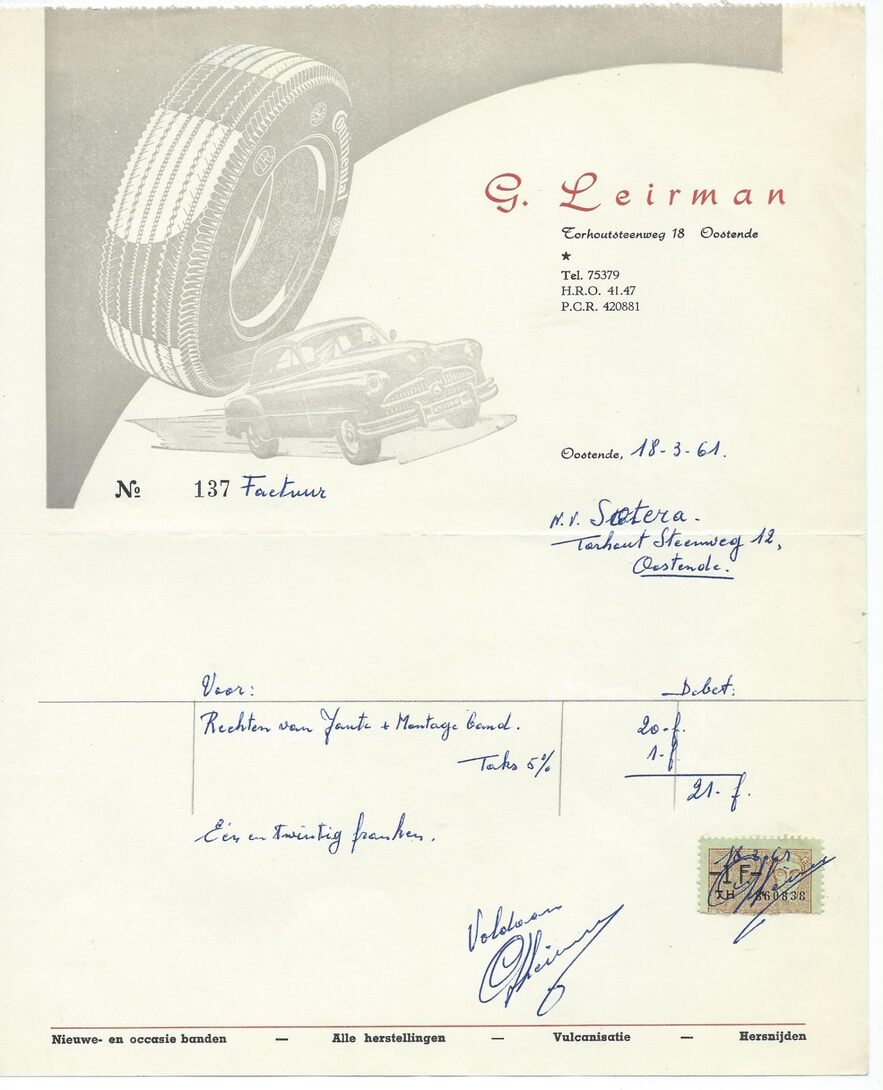 Continental
G. Leirman
Torhoutsteenweg 18 Oostende
★
Tel. 75379
H.R.O. 41.47
P.C.R. 420881
Oostende, 18-3-61.
№ 137 Factuur
N.V. Sotera.
Torhout Steenweg 12,
Oostende.
Voor: Debet:
Rechten van Jante + Montage band. 20-f.
Taks 5% 1-f
21- f.
Eén en twintig franken.
18.3.61
1 F
XH 860838
Voldaan
Nieuwe- en occasie banden — Alle herstellingen — Vulcanisatie — Hersnijden